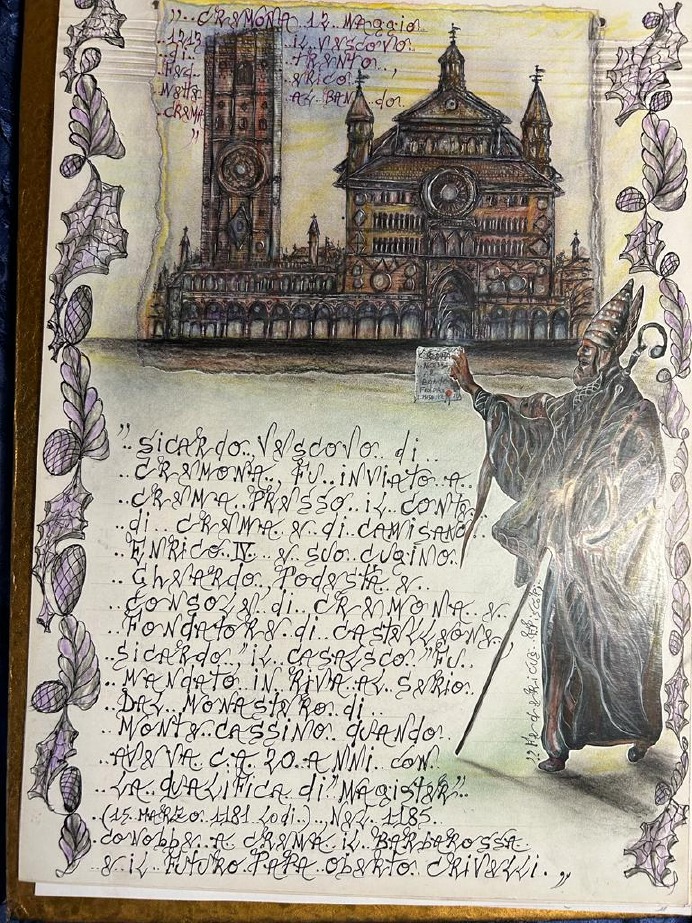 "..CREMONA 12 MAGGIO
1213.. IL VESCOVO..
di.. TRENTO..
FED.. ERICO..
METTE.. AL BAN..do..
CREMA..
"
"..SICARDO..VESCOVO di..
..CREMONA..FU..INVIATO A..
..CREMA PRESSO..IL CONTE
..di..CREMA E di CAMISANO..
..ENRICO IV.. E SUO CUGINO..
..GHERARDO..PODESTÀ E..
..CONSOLE..di..CREMONA E..
..FONDATORE..di CASTELLEONE..
..SICARDO.."IL CASALSCO" FU..
..MANDATO IN RIVA AL SERIO..
..DAL MONASTERO di..
MONTECASSINO QUANDO..
AVEVA C.A 20 ANNI CON..
LA QUALIFICA di "MAGISTER"..
..(15 MARZO 1181 LODI)...NEL 1185..
CONOBBE..A CREMA IL BARBAROSSA..
E IL FUTURO PAPA OBERTO CRIVELLI.."